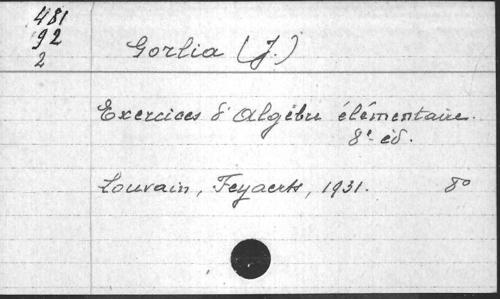 481
92
2
Gorlia (J.)
Exercices d'Algèbre élémentaire.
8e éd.
Louvain, Feyaerts, 1931. 8°